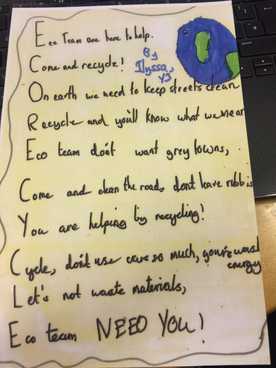 Eco Team are here to help.
Come and recycle!
By
Ilyssa,
Y3
On earth we need to keep streets clean
Recycle and you'll know what we mean
Eco team don't want grey towns,
Come and clean the road, dont leave rubbis
You are helping by recycling!
Cycle, don't use cars so much, you're wast
energy
Let's not waste materials,
Eco team NEED YOU!